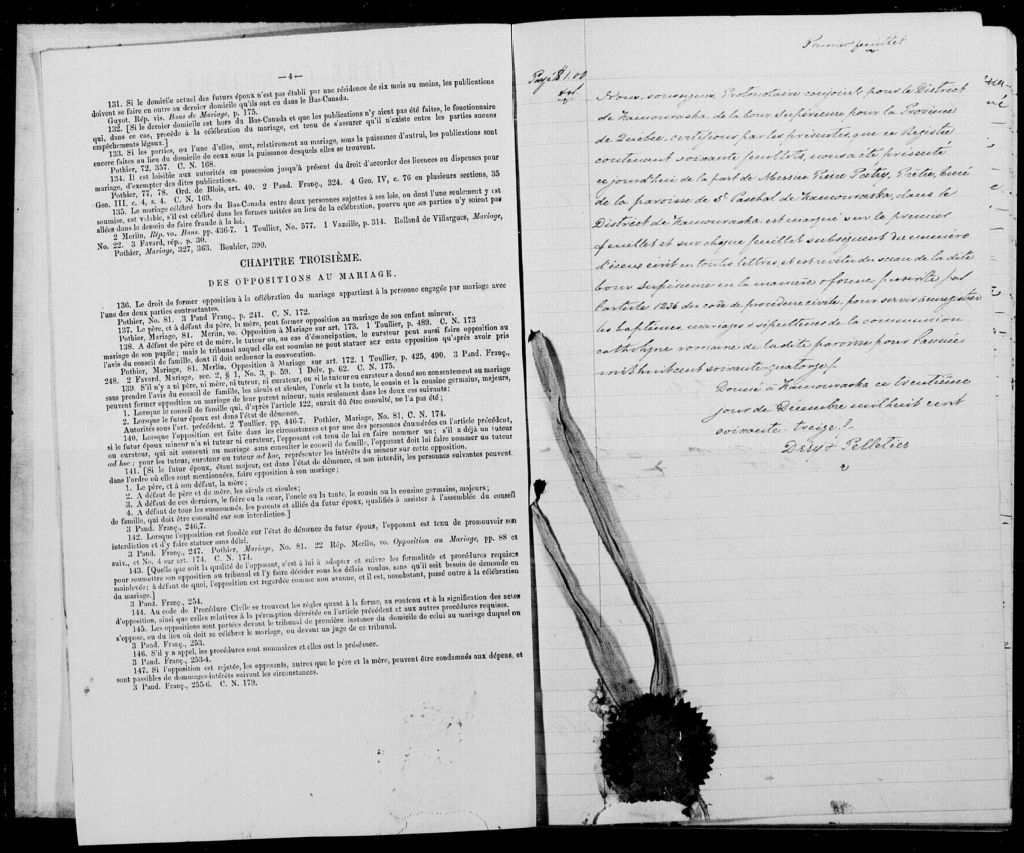 —4—
131. Si le domicile actuel des futurs époux n'est pas établi par une résidence de six mois au moins, les publications
doivent se faire en outre au dernier domicile qu'ils ont eu dans le Bas-Canada.
Guyot. Rép. vis. Bans de Mariage, p. 175.
132. [Si le dernier domicile est hors du Bas-Canada et que les publications n'y aient pas été faites, le fonctionnaire
qui, dans ce cas, procède à la célébration du mariage, est tenu de s'assurer qu'il n'existe entre les parties aucuns
empêchements légaux.]
133. Si les parties, ou l'une d'elles, sont, relativement au mariage, sous la puissance d'autrui, les publications sont
encore faites au lieu du domicile de ceux sous la puissance desquels elles se trouvent.
Pothier, 72, 357. C. N. 168.
134. Il est loisible aux autorités en possession jusqu'à présent du droit d'accorder des licences ou dispenses pour
mariage, d'exempter des dites publications.
Pothier, 77, 78. Ord. de Blois, art. 40. 2 Pand. Franç., 324. 4 Geo. IV, c. 76 en plusieurs sections, 35
Geo. III, c. 4, s. 4. C. N. 169.
135. Le mariage célébré hors du Bas-Canada entre deux personnes sujettes à ses lois, ou dont l'une seulement y est
soumise, est valable, s'il est célébré dans les formes usitées au lieu de la célébration, pourvu que ces parties n'y soient pas
allées dans le dessein de faire fraude à la loi.
2 Merlin, Rép. vo. Bans. pp. 436-7. 1 Toullier, No. 577. 1 Vazeille, p. 314. Rolland de Villargues, Mariage,
No. 22. 3 Favard, rép., p. 30.
Pothier, Mariage, 327, 363. Bouhier, 390.
CHAPITRE TROISIÈME.
DES OPPOSITIONS AU MARIAGE.
136. Le droit de former opposition à la célébration du mariage appartient à la personne engagée par mariage avec
l'une des deux parties contractantes.
Pothier, No. 81. 3 Pand Franç., p. 241. C. N. 172.
137. Le père, et à défaut du père, la mère, peut former opposition au mariage de son enfant mineur.
Pothier, Mariage, 81. Merlin, vo. Opposition à Mariage sur art. 173. 1 Toullier, p. 489. C. N. 173
138. A défaut de père et de mère, le tuteur ou, au cas d'émancipation, le curateur peut aussi faire opposition au
mariage de son pupille; mais le tribunal auquel elle est soumise ne peut statuer sur cette opposition qu'après avoir pris
l'avis du conseil de famille, dont il doit ordonner la convocation.
Pothier, Mariage, 81. Merlin, Opposition à Mariage sur art. 172. 1 Toullier, p. 425, 490. 3 Pand. Franç.,
248. 2 Favard. Mariage, sec. 2, § 1, No. 3, p. 59. 1 Delv. p. 62. C. N. 175.
139. S'il n'y a ni père, ni mère, ni tuteur, ni curateur, ou si le tuteur ou curateur a donné son consentement au mariage
sans prendre l'avis du conseil de famille, les aïeuls et aïeules, l'oncle et la tante, le cousin et la cousine germains, majeurs,
peuvent former opposition au mariage de leur parent mineur, mais seulement dans les deux cas suivants:
1. Lorsque le conseil de famille qui, d'après l'article 122, aurait dû être consulté, ne l'a pas été;
2. Lorsque le futur époux est dans l'état de démence.
Autorités sous l'art. précédent. 2 Toullier, pp. 446-7. Pothier, Mariage, No. 81. C. N. 174.
140. Lorsque l'opposition est faite dans les circonstances et par une des personnes énumérées en l'article précédent,
si le futur époux mineur n'a ni tuteur ni curateur, l'opposant est tenu de lui en faire nommer un; s'il a déjà un tuteur
ou curateur, qui ait consenti au mariage sans consulter le conseil de famille, l'opposant doit lui faire nommer un tuteur
ad hoc; pour les tuteur, curateur ou tuteur ad hoc, représenter les intérêts du mineur sur cette opposition.
141. [Si le futur époux, étant majeur, est dans l'état de démence, et non interdit, les personnes suivantes peuvent,
dans l'ordre où elles sont mentionnées, faire opposition à son mariage;
1. Le père, et à son défaut, la mère;
2. A défaut de père et de mère, les aïeuls et aïeules;
3. A défaut de ces derniers, le frère ou la sœur, l'oncle ou la tante, le cousin ou la cousine germains, majeurs;
4. A défaut de tous les susnommés, les parents et alliés du futur époux, qualifiés à assister à l'assemblée du conseil
de famille, qui doit être consulté sur son interdiction.]
3 Pand. Franç., 246,7.
142. Lorsque l'opposition est fondée sur l'état de démence du futur époux, l'opposant est tenu de promouvoir son
interdiction et d'y faire statuer sans délai.
3 Pand. Franç., 247. Pothier, Mariage, No. 81. 22 Rép. Merlin, vo. Opposition au Mariage, pp. 88 et
suiv., et No. 4 sur art. 174. C. N. 174.
143. [Quelle que soit la qualité de l'opposant, c'est à lui à adopter et suivre les formalités et procédures requises
pour soumettre son opposition au tribunal et l'y faire décider sous les délais voulus, sans qu'il soit besoin de demande en
mainlevée; à défaut de quoi, l'opposition est regardée comme non avenue, et il est, nonobstant, passé outre à la célébration
du mariage.]
3 Pand. Franç., 254.
144. Au code de Procédure Civile se trouvent les règles quant à la forme, au contenu et à la signification des actes
d'opposition, ainsi que celles relatives à la péremption décrétée en l'article précédent et aux autres procédures requises.
145. Les oppositions sont portées devant le tribunal de première instance du domicile de celui au mariage duquel on
s'oppose, ou du lieu où doit se célébrer le mariage, ou devant un juge de ce tribunal.
3 Pand. Franç., 253.
146. S'il y a appel, les procédures sont sommaires et elles ont la préséance.
3 Pand. Franç., 253-4.
147. Si l'opposition est rejetée, les opposants, autres que le père et la mère, peuvent être condamnés aux dépens, et
sont passibles de dommages-intérêts suivant les circonstances.
3 Pand. Franç., 255-6. C. N. 179.
Premier feuillet
Payé $1.00
Nous, soussignés, Protonotaire conjoint, pour le District
de Kamouraska de la Cour Supérieure pour la Province
de Québec, certifions par les présentes, que ce Registre
contenant soixante feuillets, nous a été présenté
ce jourd'hui de la part de Messire Prêtre, Curé
de la paroisse de St Paschal de Kamouraska, dans le
District de Kamouraska, est marqué sur le premier
feuillet et sur chaque feuillet subséquent du numéro
d'iceux écrit en toutes lettres, et est revêtu du sceau de la dite
Cour Supérieure en la manière & forme prescrite par
l'article 1236 du code de procédure civile, pour servir à enregistrer
les baptêmes, mariages & sépultures de la communion
catholique romaine de la dite paroisse pour l'année
mil huit cent soixante-quatorze.
Donné à Kamouraska ce trentième
jour de Décembre mil huit cent
soixante-treize.
& Pelletier